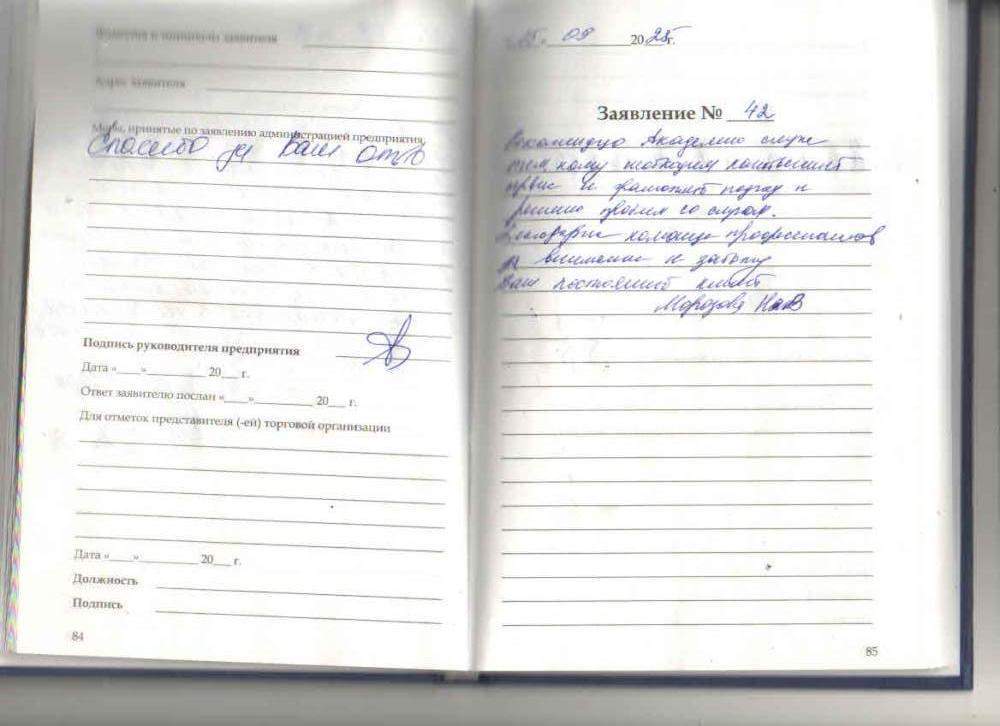 Фамилия и инициалы заявителя
Адрес заявителя
Меры, принятые по заявлению администрацией предприятия
Спасибо за Ваш отзыв
Подпись руководителя предприятия
Дата «____»__________ 20___ г.
Ответ заявителю послан «____»__________ 20___ г.
Для отметок представителя (-ей) торговой организации
Дата «____»__________ 20___ г.
Должность
Подпись
84
09 2025г.
Заявление № 42
Рекомендую Академию слуха
всем кому необходим
сервис и грамотный подход к
решению проблем со слухом.
Благодарю команду профессионалов
за внимание и заботу
Ваш постоянный клиент
Морозова
85